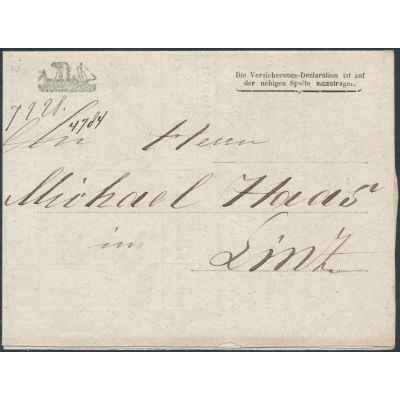 Die Versicherungs-Declaration ist auf
der nebigen Spalte einzutragen.
7228.
4784
An Herrn
Michael Haas
in
Linz